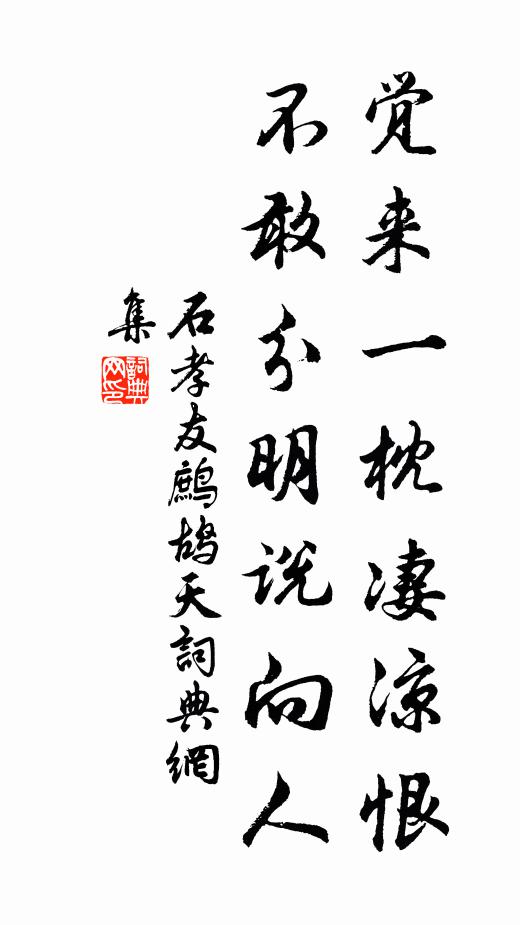 覚来一枕凄凉恨
不敢分明说向人
石孝友鹧鸪天詞典網
集
詞典
网印